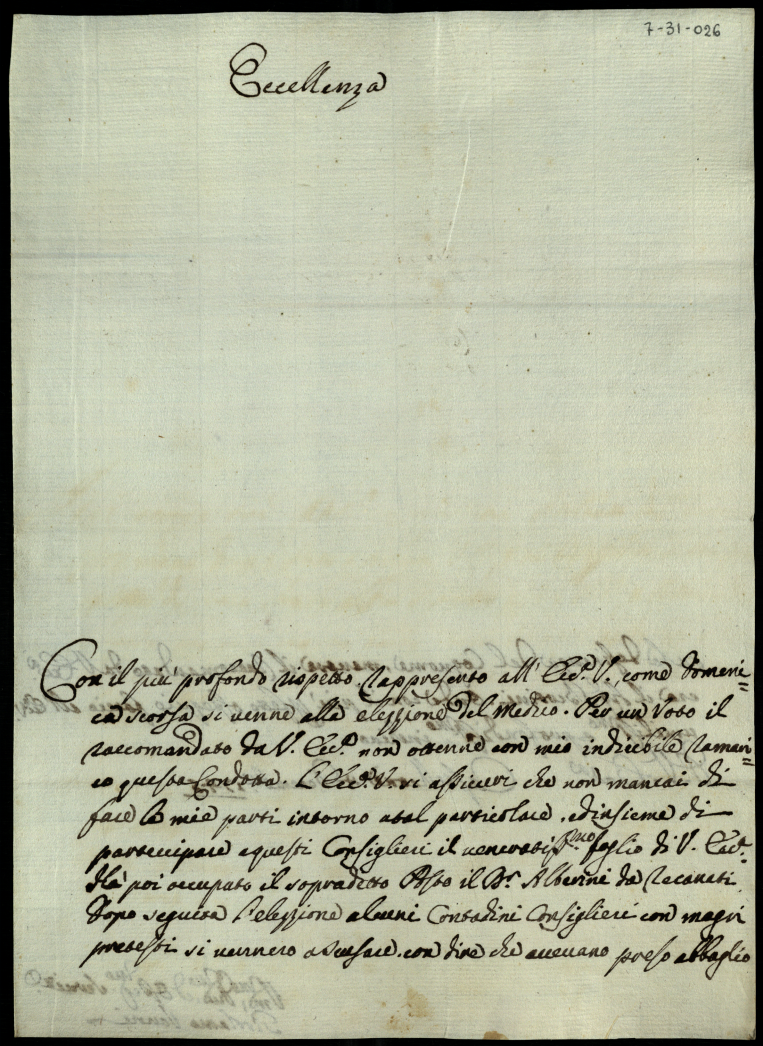 7-31-026
Eccellenza
Con il più profondo rispetto rappresento all' Ecc.ª V., come Domeni=
ca scorsa si venne alla elezzione del Medico. Per un Voto il
raccomandato da V. Ecc.ª non ottenne con mio indicibile ramari=
co questa Condotta. L'Ecc.ª V. si assicuri che non mancai di
fare le mie parti intorno a tal particolare, ed insieme di
partecipare a questi Consiglieri il veneratiss.mo foglio di V. Ecc.ª
Hà poi occupato il sopradetto Posto il D.r Alberini da Recanati.
Dopo seguita l'elezzione alcuni Contadini Consiglieri con magri
pretesti si vennero a scusare con dire che avevano preso abbaglio